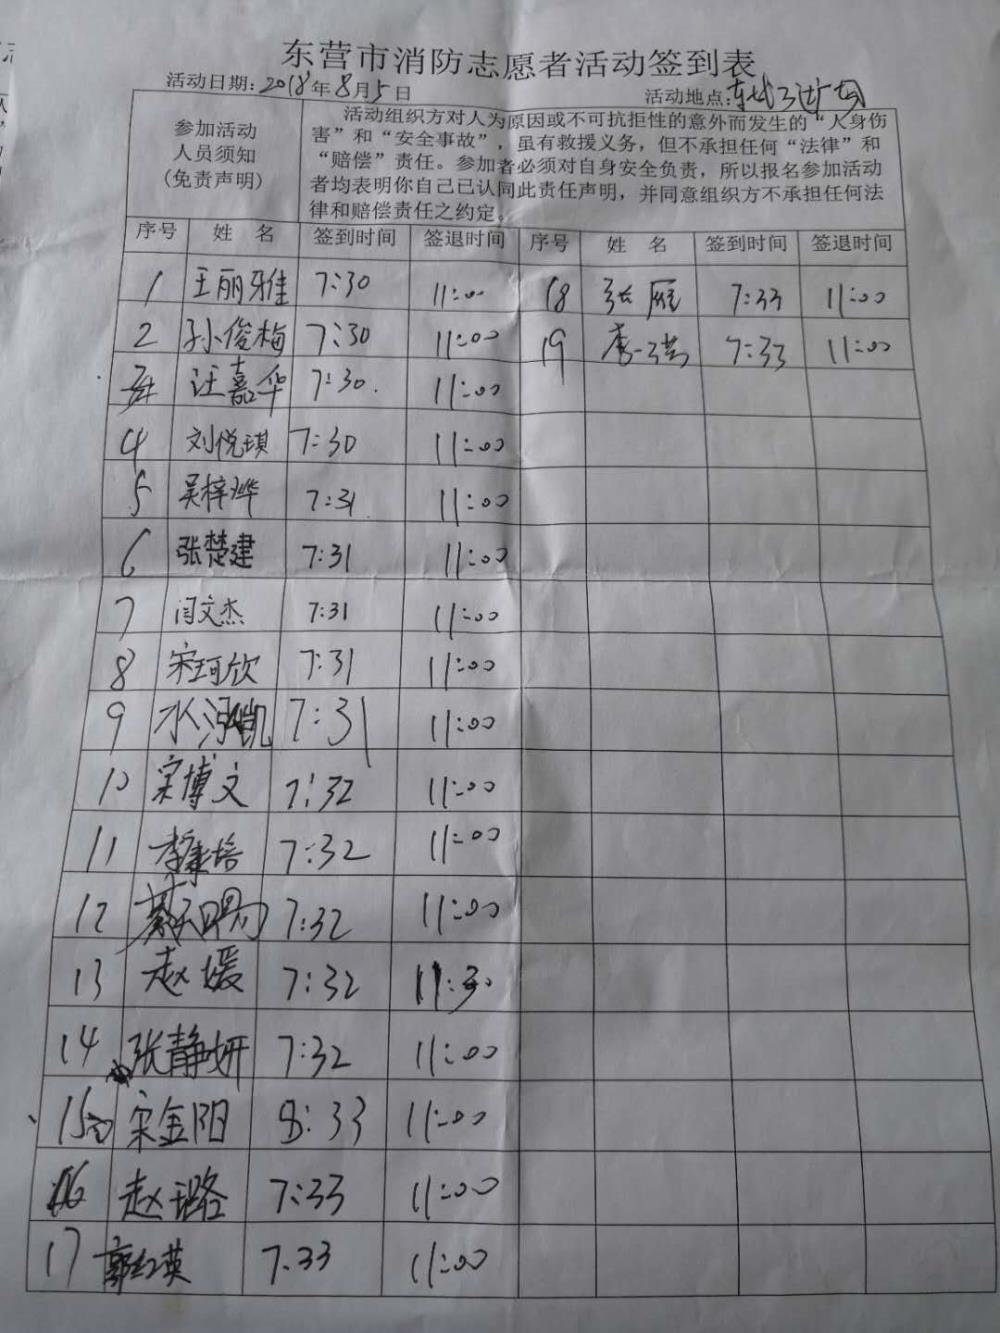 东营市消防志愿者活动签到表
活动日期:2018年8月5日 活动地点:东城
参加活动
人员须知
(免责声明)
活动组织方对人为原因或不可抗拒性的意外而发生的“人身伤
害”和“安全事故”，虽有救援义务，但不承担任何“法律”和
“赔偿”责任。参加者必须对自身安全负责，所以报名参加活动
者均表明你自己已认同此责任声明，并同意组织方不承担任何法
律和赔偿责任之约定。
序号 姓 名 签到时间 签退时间 序号 姓 名 签到时间 签退时间
1 王丽雅 7:30 11:00 18 张雁 7:33 11:00
2 孙俊梅 7:30 11:00 19 李 7:33 11:00
汪嘉华 7:30. 11:00
4 刘悦琪 7:30 11:00
5 吴梓烨 7:31 11:00
6 张楚建 7:31 11:00
7 闫文杰 7:31 11:00
8 宋珂欣 7:31 11:00
9 水 凯 7:31 11:00
10 宋博文 7:32 11:00
11 李 培 7:32 11:00
12 綦天赐 7:32 11:00
13 赵媛 7:32 11:30
14 张静妍 7:32 11:00
15 宋金阳 8:33 11:00
16 赵璐 7:33 11:00
17 郭红英 7.33 11:00